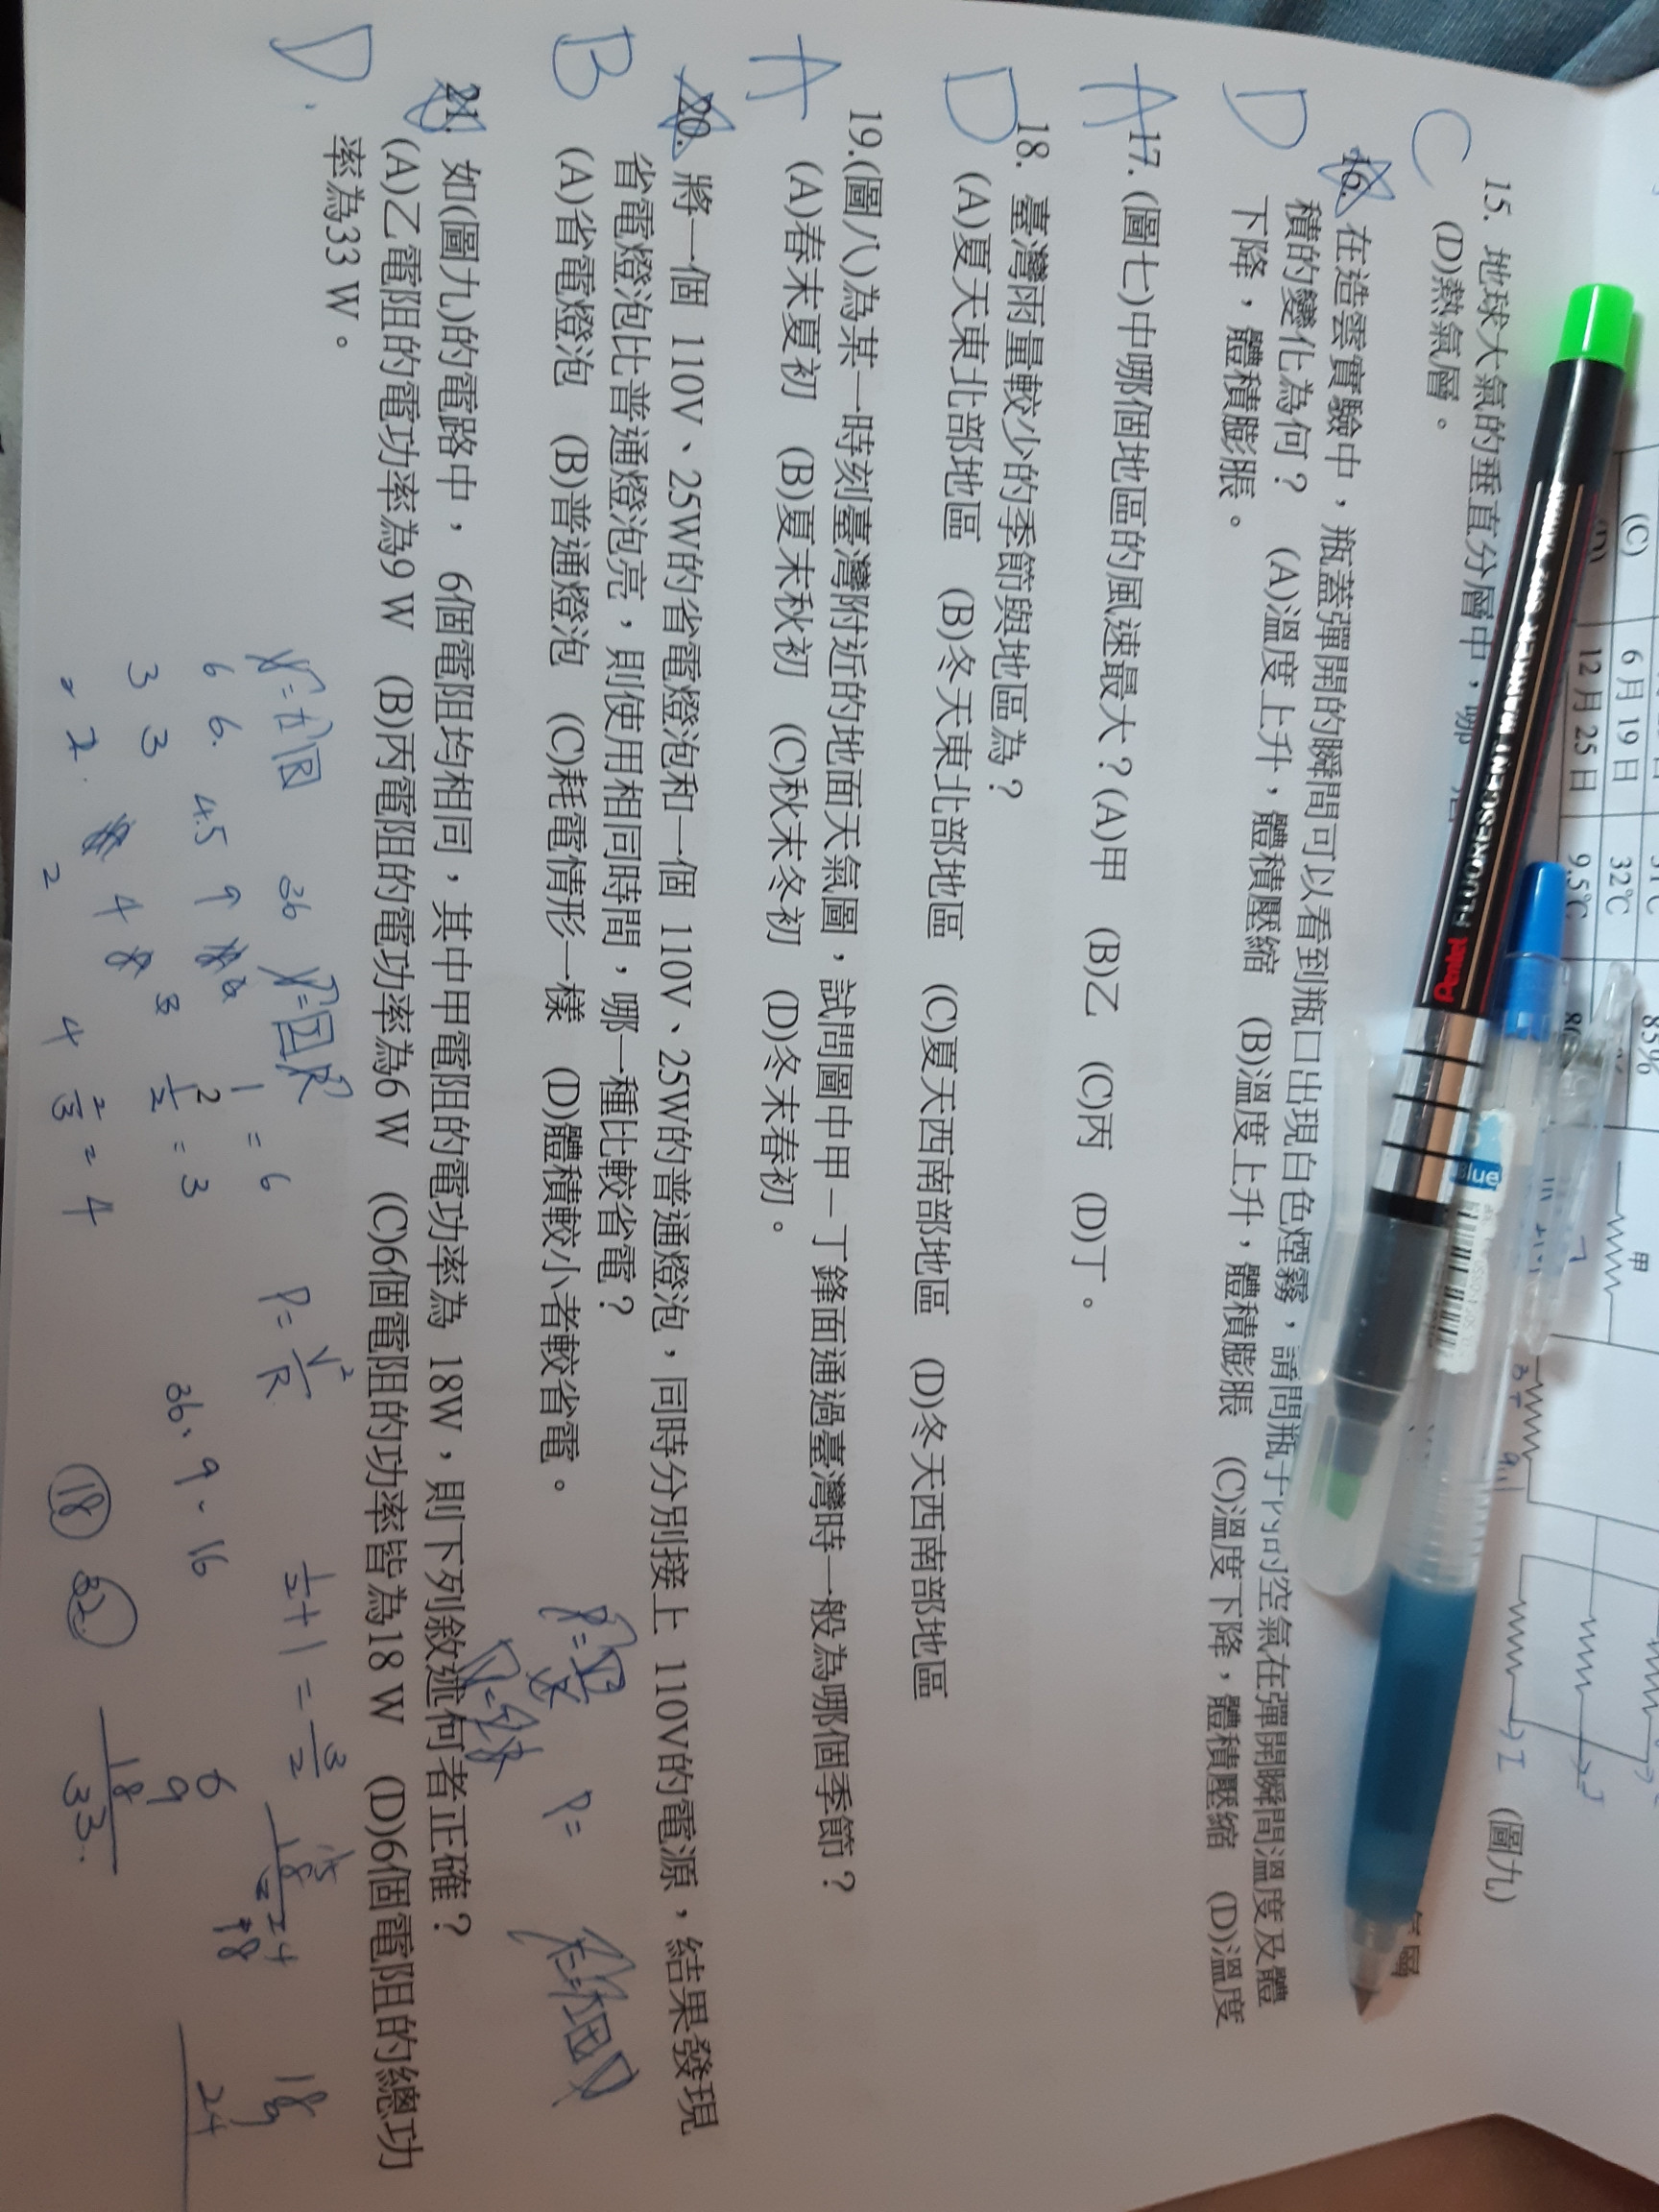 (C) 6月19日 32℃ 85%
12月25日 9.5℃
甲
(圖九)
C
15. 地球大氣的垂直分層中，哪
(D)熱氣層。
D
16. 在造雲實驗中，瓶蓋彈開的瞬間可以看到瓶口出現白色煙霧，請問瓶子內的空氣在彈開瞬間溫度及體
積的變化為何？ (A)溫度上升，體積壓縮 (B)溫度上升，體積膨脹 (C)溫度下降，體積壓縮 (D)溫度
下降，體積膨脹。
A
17. (圖七)中哪個地區的風速最大？(A)甲 (B)乙 (C)丙 (D)丁。
D
18. 臺灣雨量較少的季節與地區為？
(A)夏天東北部地區 (B)冬天東北部地區 (C)夏天西南部地區 (D)冬天西南部地區
A
19.(圖八)為某一時刻臺灣附近的地面天氣圖，試問圖中甲–丁鋒面通過臺灣時一般為哪個季節？
(A)春末夏初 (B)夏末秋初 (C)秋末冬初 (D)冬末春初。
B
20. 將一個 110V、25W的省電燈泡和一個 110V、25W的普通燈泡，同時分別接上 110V的電源，結果發現
省電燈泡比普通燈泡亮，則使用相同時間，哪一種比較省電？
(A)省電燈泡 (B)普通燈泡 (C)耗電情形一樣 (D)體積較小者較省電。
D.
21. 如(圖九)的電路中， 6個電阻均相同，其中甲電阻的電功率為 18W，則下列敘述何者正確？
(A)乙電阻的電功率為9 W (B)丙電阻的電功率為6 W (C)6個電阻的功率皆為18 W (D)6個電阻的總功
率為33 W。
P=
36
1 = 6
P=V²/R
1/2+1=3/2
6 6. 4.5 9
2 1/2 = 3
36、9、16
6
9
18
33.
3 3
4
2/3 = 4
18
18
24
Pentel
blue